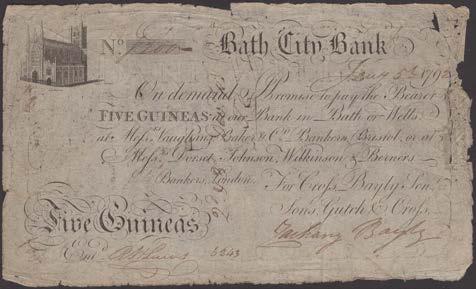 No. 1200 Bath City Bank
Jany 5th 1792
On demand I Promise to pay the Bearer
FIVE GUINEAS at our Bank in Bath or Wells
at Messrs. Vaughan, Baker & Co. Bankers, Bristol, or at
Messrs. Dorset, Johnson, Wilkinson & Berners
Bankers, London. For Cross, Bayly Son,
Sons, Gutch & Cross,
Five Guineas
Zachary Bayly
Entd.